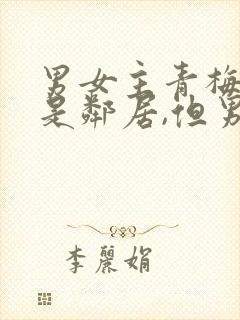 男女主青梅
是鄰居,但男
李麗娟